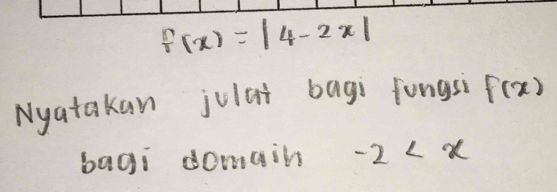 f(x) = |4-2x|
Nyatakan julat bagi fungsi f(x)
bagi domain -2 < x